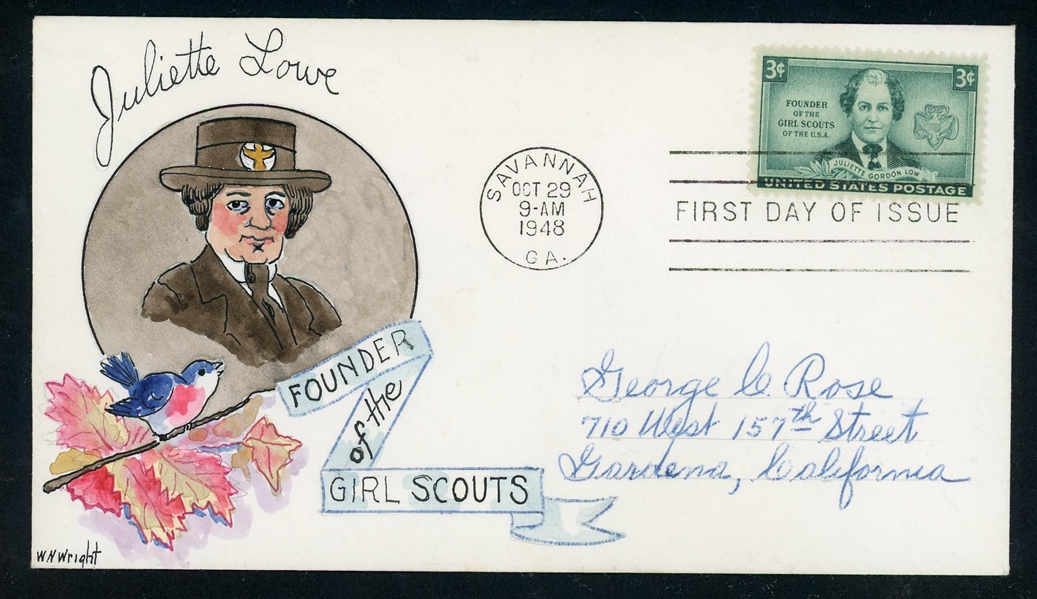 Juliette Lowe
FOUNDER
of the
GIRL SCOUTS
W N Wright
SAVANNAH
OCT 29
9-AM
1948
GA.
3¢
3¢
FOUNDER
OF THE
GIRL SCOUTS
OF THE U.S.A.
JULIETTE GORDON LOW
UNITED STATES POSTAGE
FIRST DAY OF ISSUE
George C. Rose
710 West 157th Street
Gardena, California